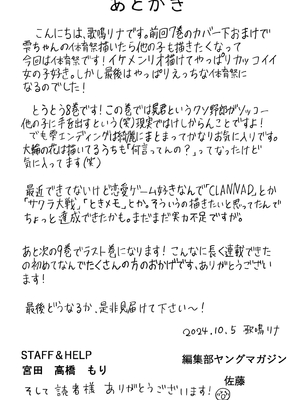 あとがき
こんにちは、歌鳴リナです。前回7巻のカバー下おまけで
雫ちゃんの体育祭描いたら他の子も描きたくなって
今回は体育祭です!イケメンリオ描けてやっぱりカッコイイ
女の子好き。しかし最後はやっぱりえっちな体育祭に
なるのでした!
とうとう8巻です!この巻では晃君というクソ野郎がソッコー
他の子に手を出すという(笑)現実ではけしからんことですよ!
でも雫エンディングは綺麗にまとまってかなりお気に入りです。
大輪の花は描いてるうちも「何言ってんの?」ってなったけど
気に入ってます(笑)
最近できてないけど恋愛ゲーム好きなんで「CLANNAD」とか
「サクラ大戦」「ときメモ」とか。そういうの描きたいと思ってたんで
ちょっと達成できたかも。まだまだ実力不足ですが。
あと次の9巻でラスト巻になります!こんなに長く連載できた
の初めてなんでたくさんの方のおかげです、ありがとうござい
ます!
最後どうなるか、是非見届けて下さい〜!
2024.10.5 歌鳴リナ
STAFF&HELP
宮田 高橋 もり
編集部ヤングマガジン
佐藤
そして読者様 ありがとうございます!